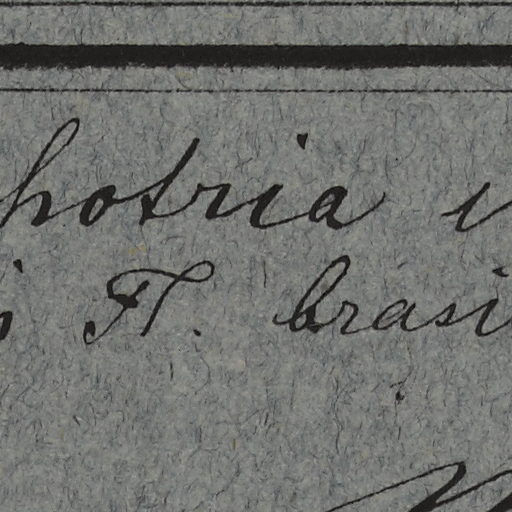 hotria
Fl. brasi